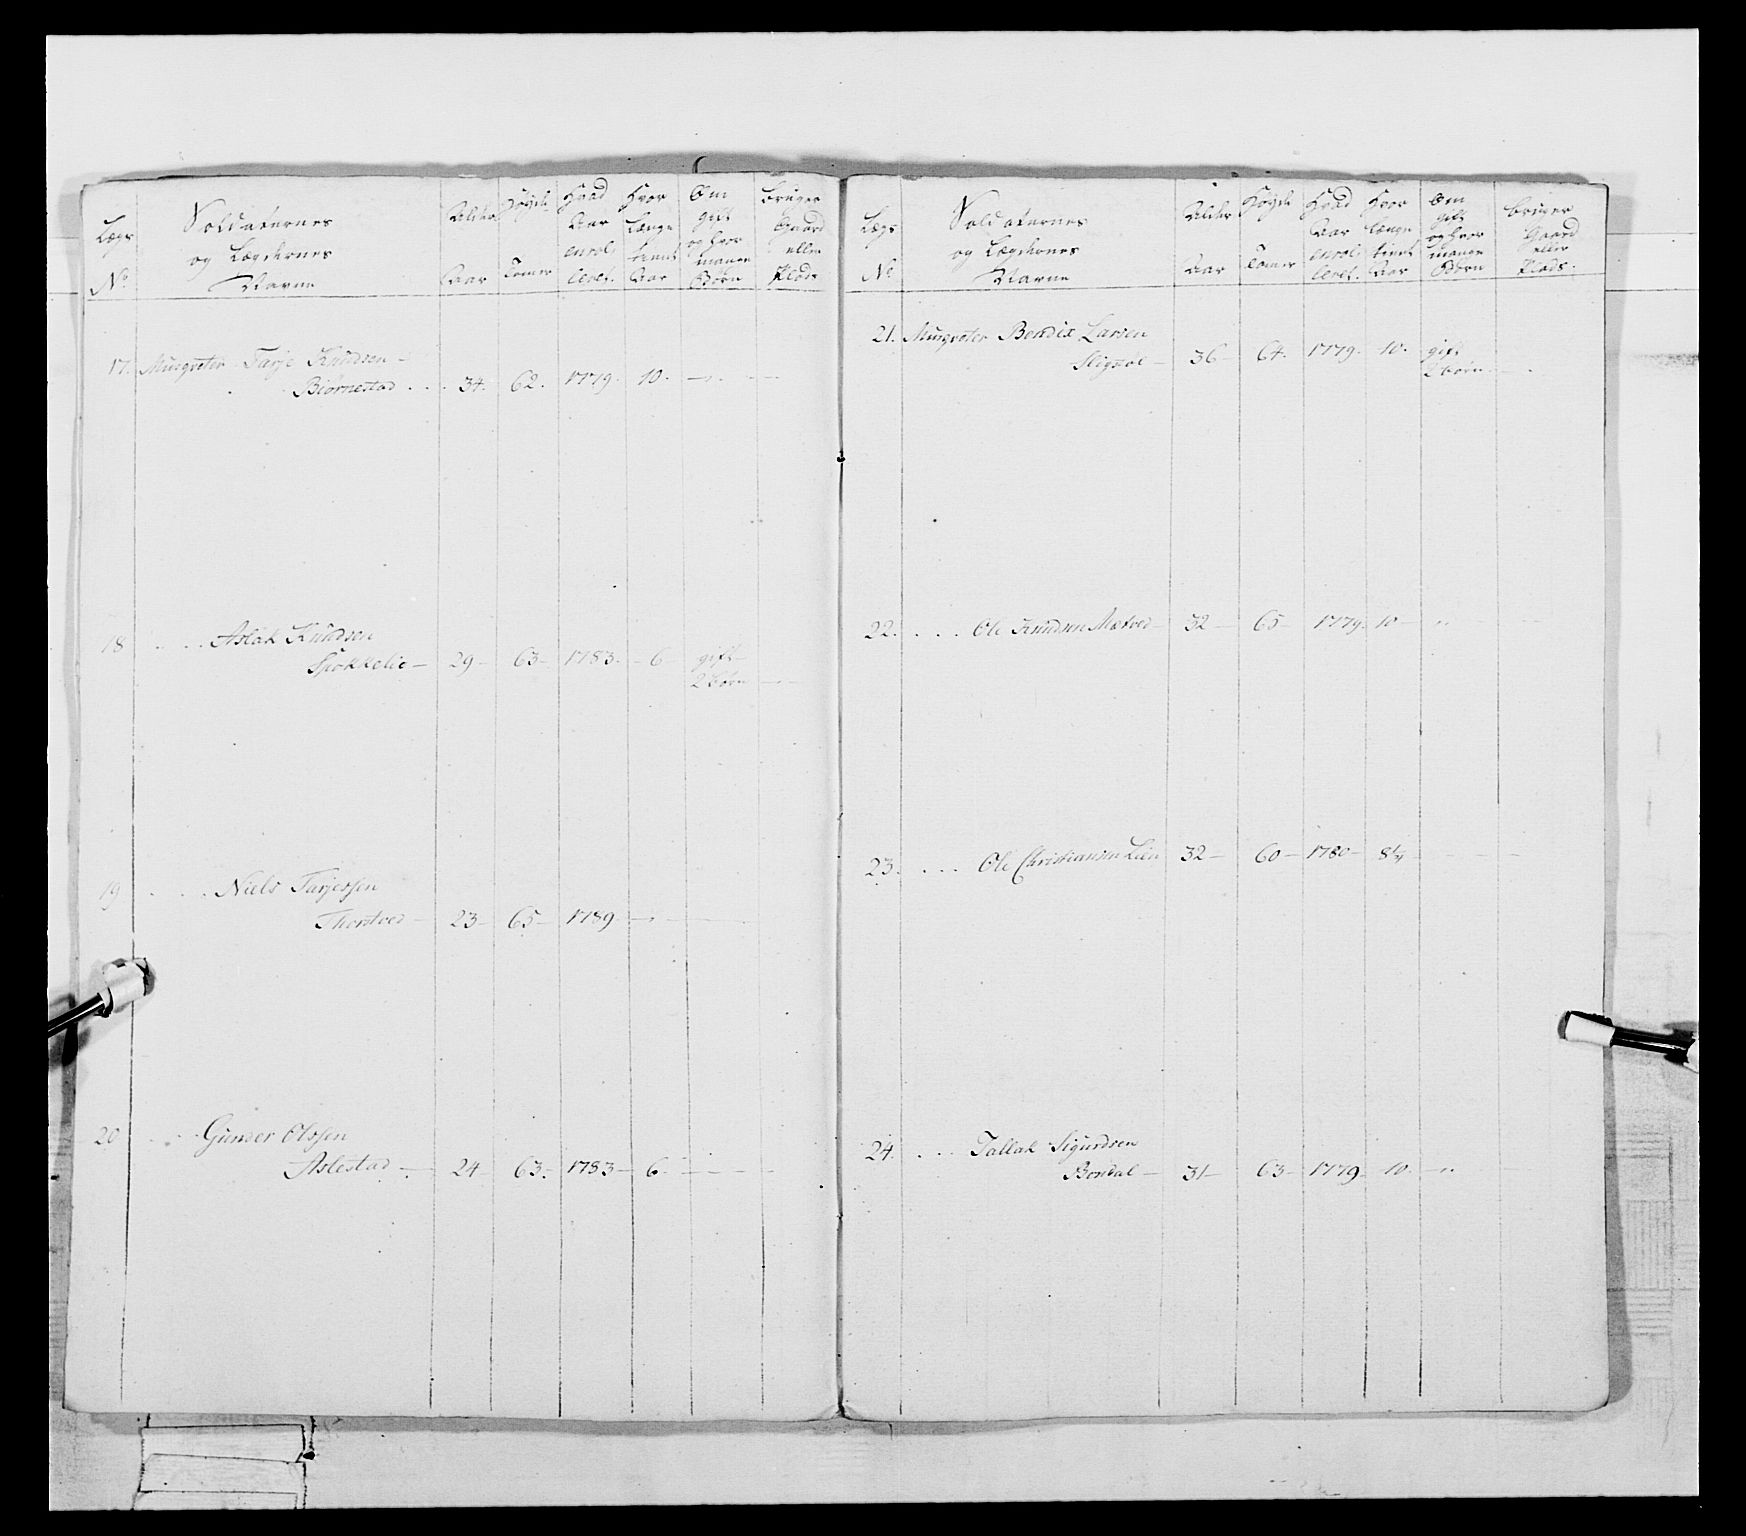 Lægs No | Soldaternes og Lægdernes Navne | Alder Aar | Høyde Tomer | Hvad Aar enrolleret. | Hvor Længe tient Aar | Om gift og hvor mange Børn | bruger Gaard eller Plads
17. Musqveter Tarje Knudsen –
Biørnestad . . . 34. 62. 1779. 10. – . –
18 . . . . Aslak Knudsen
– 29 – 63 – 1783. – 6 – gift –
2 børn – –
19 . . . . Niels Tarjessen
Thorstved – 23 – 65 – 1789 – – –
20 . . . Gunder Olssen
Aslestad – 24 63. – 1783 – 6. – – –
Lægs No | Soldaternes og Lægdernes Navne | Alder Aar | Høyde Tomer | Hvad Aar enrolleret. | Hvor længe tient Aar | Om gift og hvor mange Børn | bruger Gaard eller Plads.
21. Musqveter Bendix Larsen
– 36 – 64. 1779. 10. gift
2 børn. – .
22. . . . Ole Knudsen – 32 – 65 – 1779. 10 – ..
23. . . . Ole Christiansen Lien 32 – 60 – 1780 – 8¼ – – –
24. . . . Tallak Sigurdsen
Bondal – 31 – 63 – 1779. 10. – ..